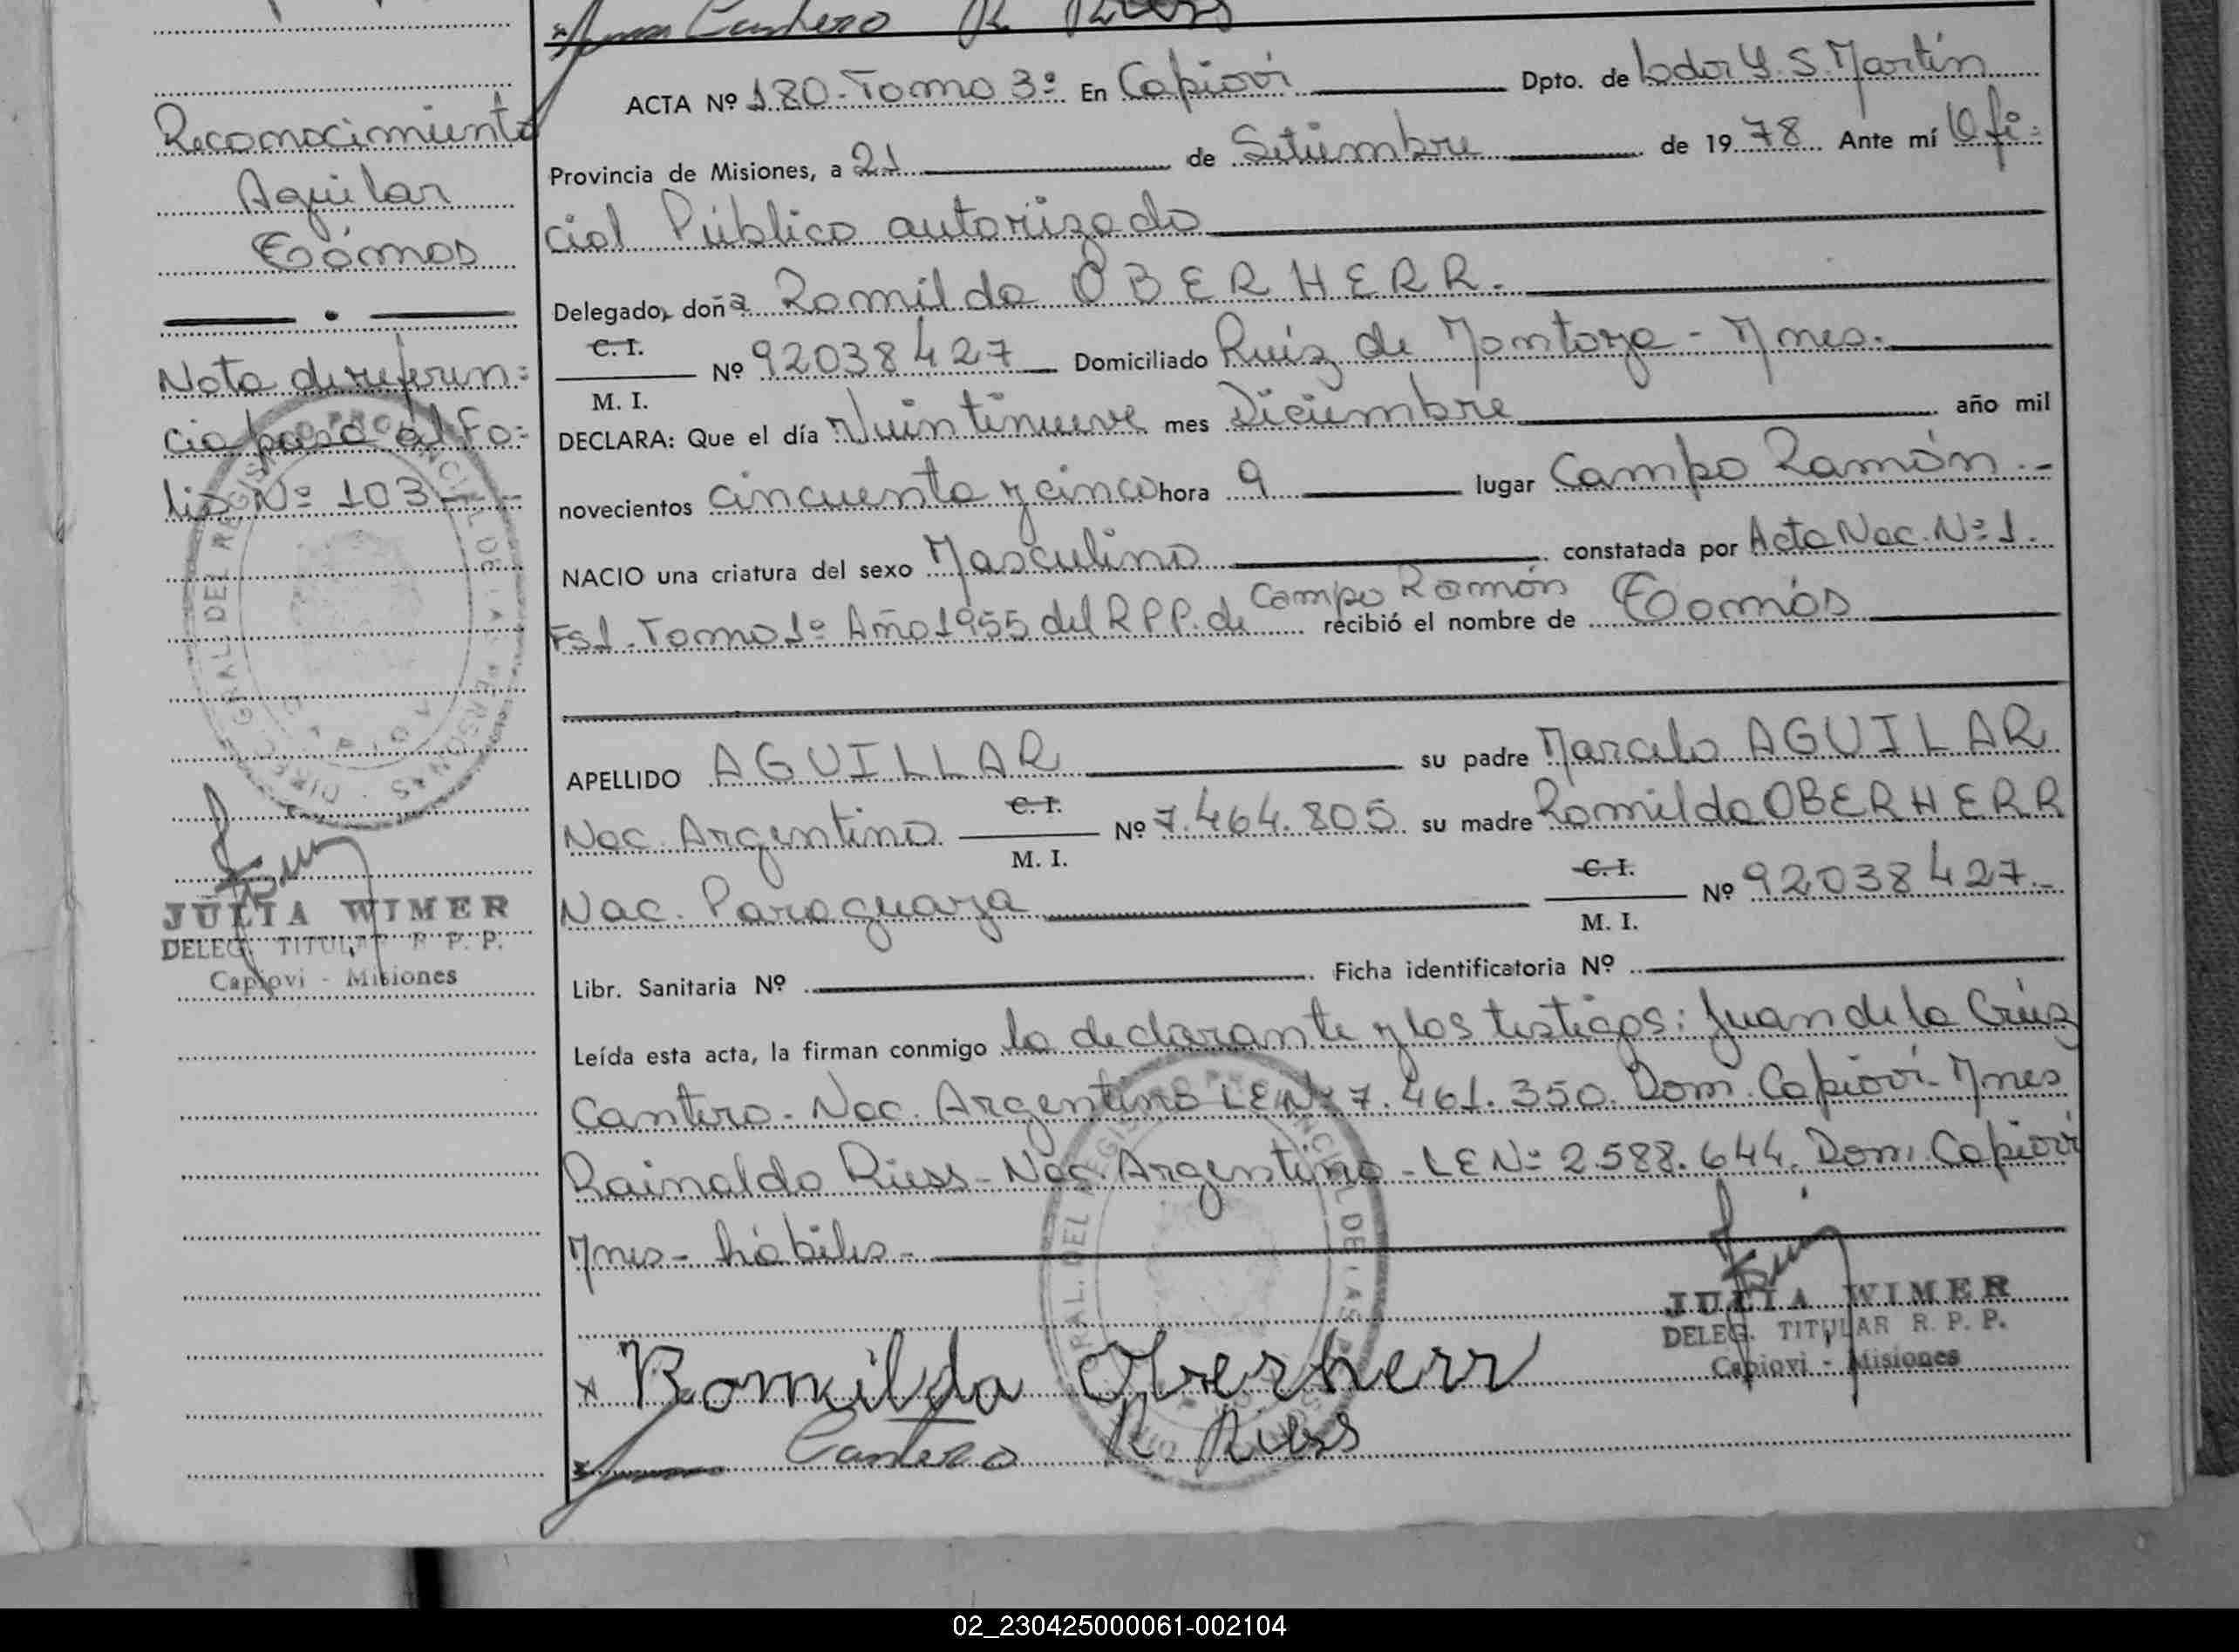 Cantero R. Riess
Reconocimiento
Aguilar
Tomás
Nota de referen=
cia pasa al Fo=
lio Nº 103 -
JULIA WIMER
DELEG. TITULAR R. P. P.
Capiovi - Misiones
ACTA Nº 180 - Tomo 3º En Capioví Dpto. de Lddor G. S. Martín
Provincia de Misiones, a 21 de Setiembre de 1978 Ante mí Ofi=
cial Público autorizado
Delegado, doña Romilda OBERHERR.
C. I.
M. I.
Nº 92038427 Domiciliado Ruíz de Montoya - Mnes.
DECLARA: Que el día Veintinueve mes Diciembre año mil
novecientos cincuenta y cinco hora 9 lugar Campo Ramón.-
NACIO una criatura del sexo Masculino constatada por Acta Nac. Nº 1.
Fs 1 - Tomo 1º Año 1955 del R P P. de Campo Ramón recibió el nombre de Tomás
APELLIDO AGUILLAR su padre Marcelo AGUILAR
Nac. Argentino C. I. M. I. Nº 7.464.805 su madre Romilda OBERHERR
Nac. Paraguaya C. I. M. I. Nº 92038427.-
Libr. Sanitaria Nº Ficha identificatoria Nº
Leída esta acta, la firman conmigo la declarante y los testigos: Juan de la Crúz
Cantero - Nac. Argentino LE Nº 7.461.350. Dom. Capioví - Mnes
Rainaldo Riess - Nac. Argentino - LE Nº 2588.644. Dom. Capioví
Mnes - hábiles -
JULIA WIMER
DELEG. TITULAR R. P. P.
Capiovi - Misiones
x Romilda Oberherr
Cantero R Riess
02_230425000061-002104